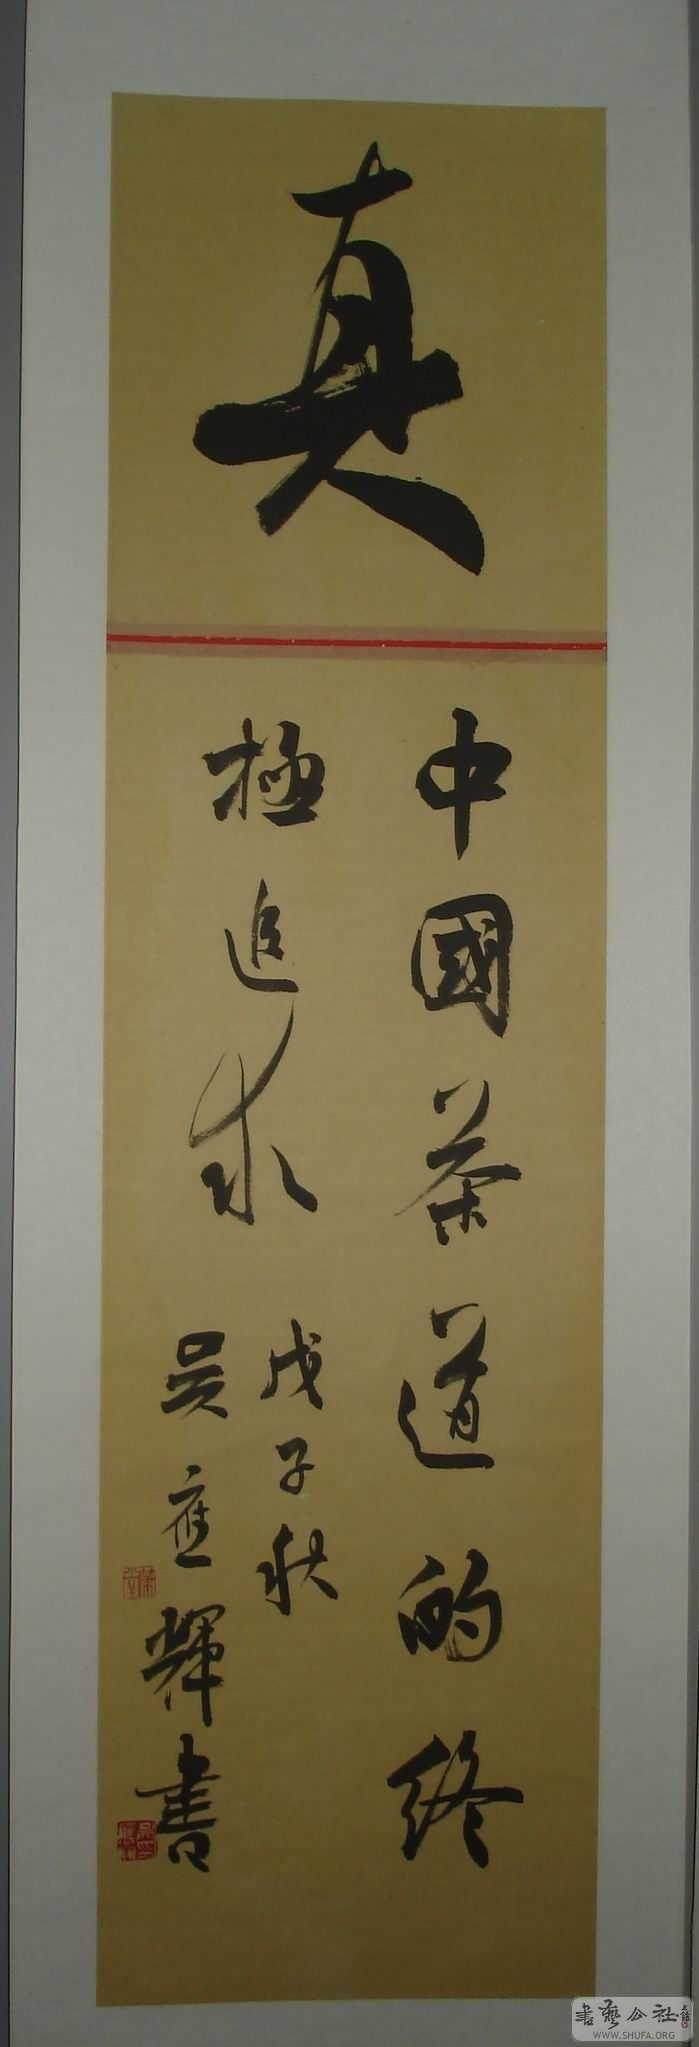 真
中國茶道的終
極追求
戊子秋
吳應輝書
書藝公社
WWW.SHUFA.ORG